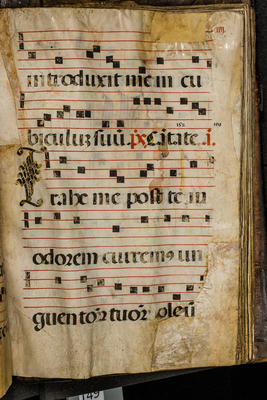 introduxit me in cu
biculuz suũ. px̃ Citate. i.
Trahe me post te in
odorem curremus un
guentoꝝ tuoꝝ oleũ
149